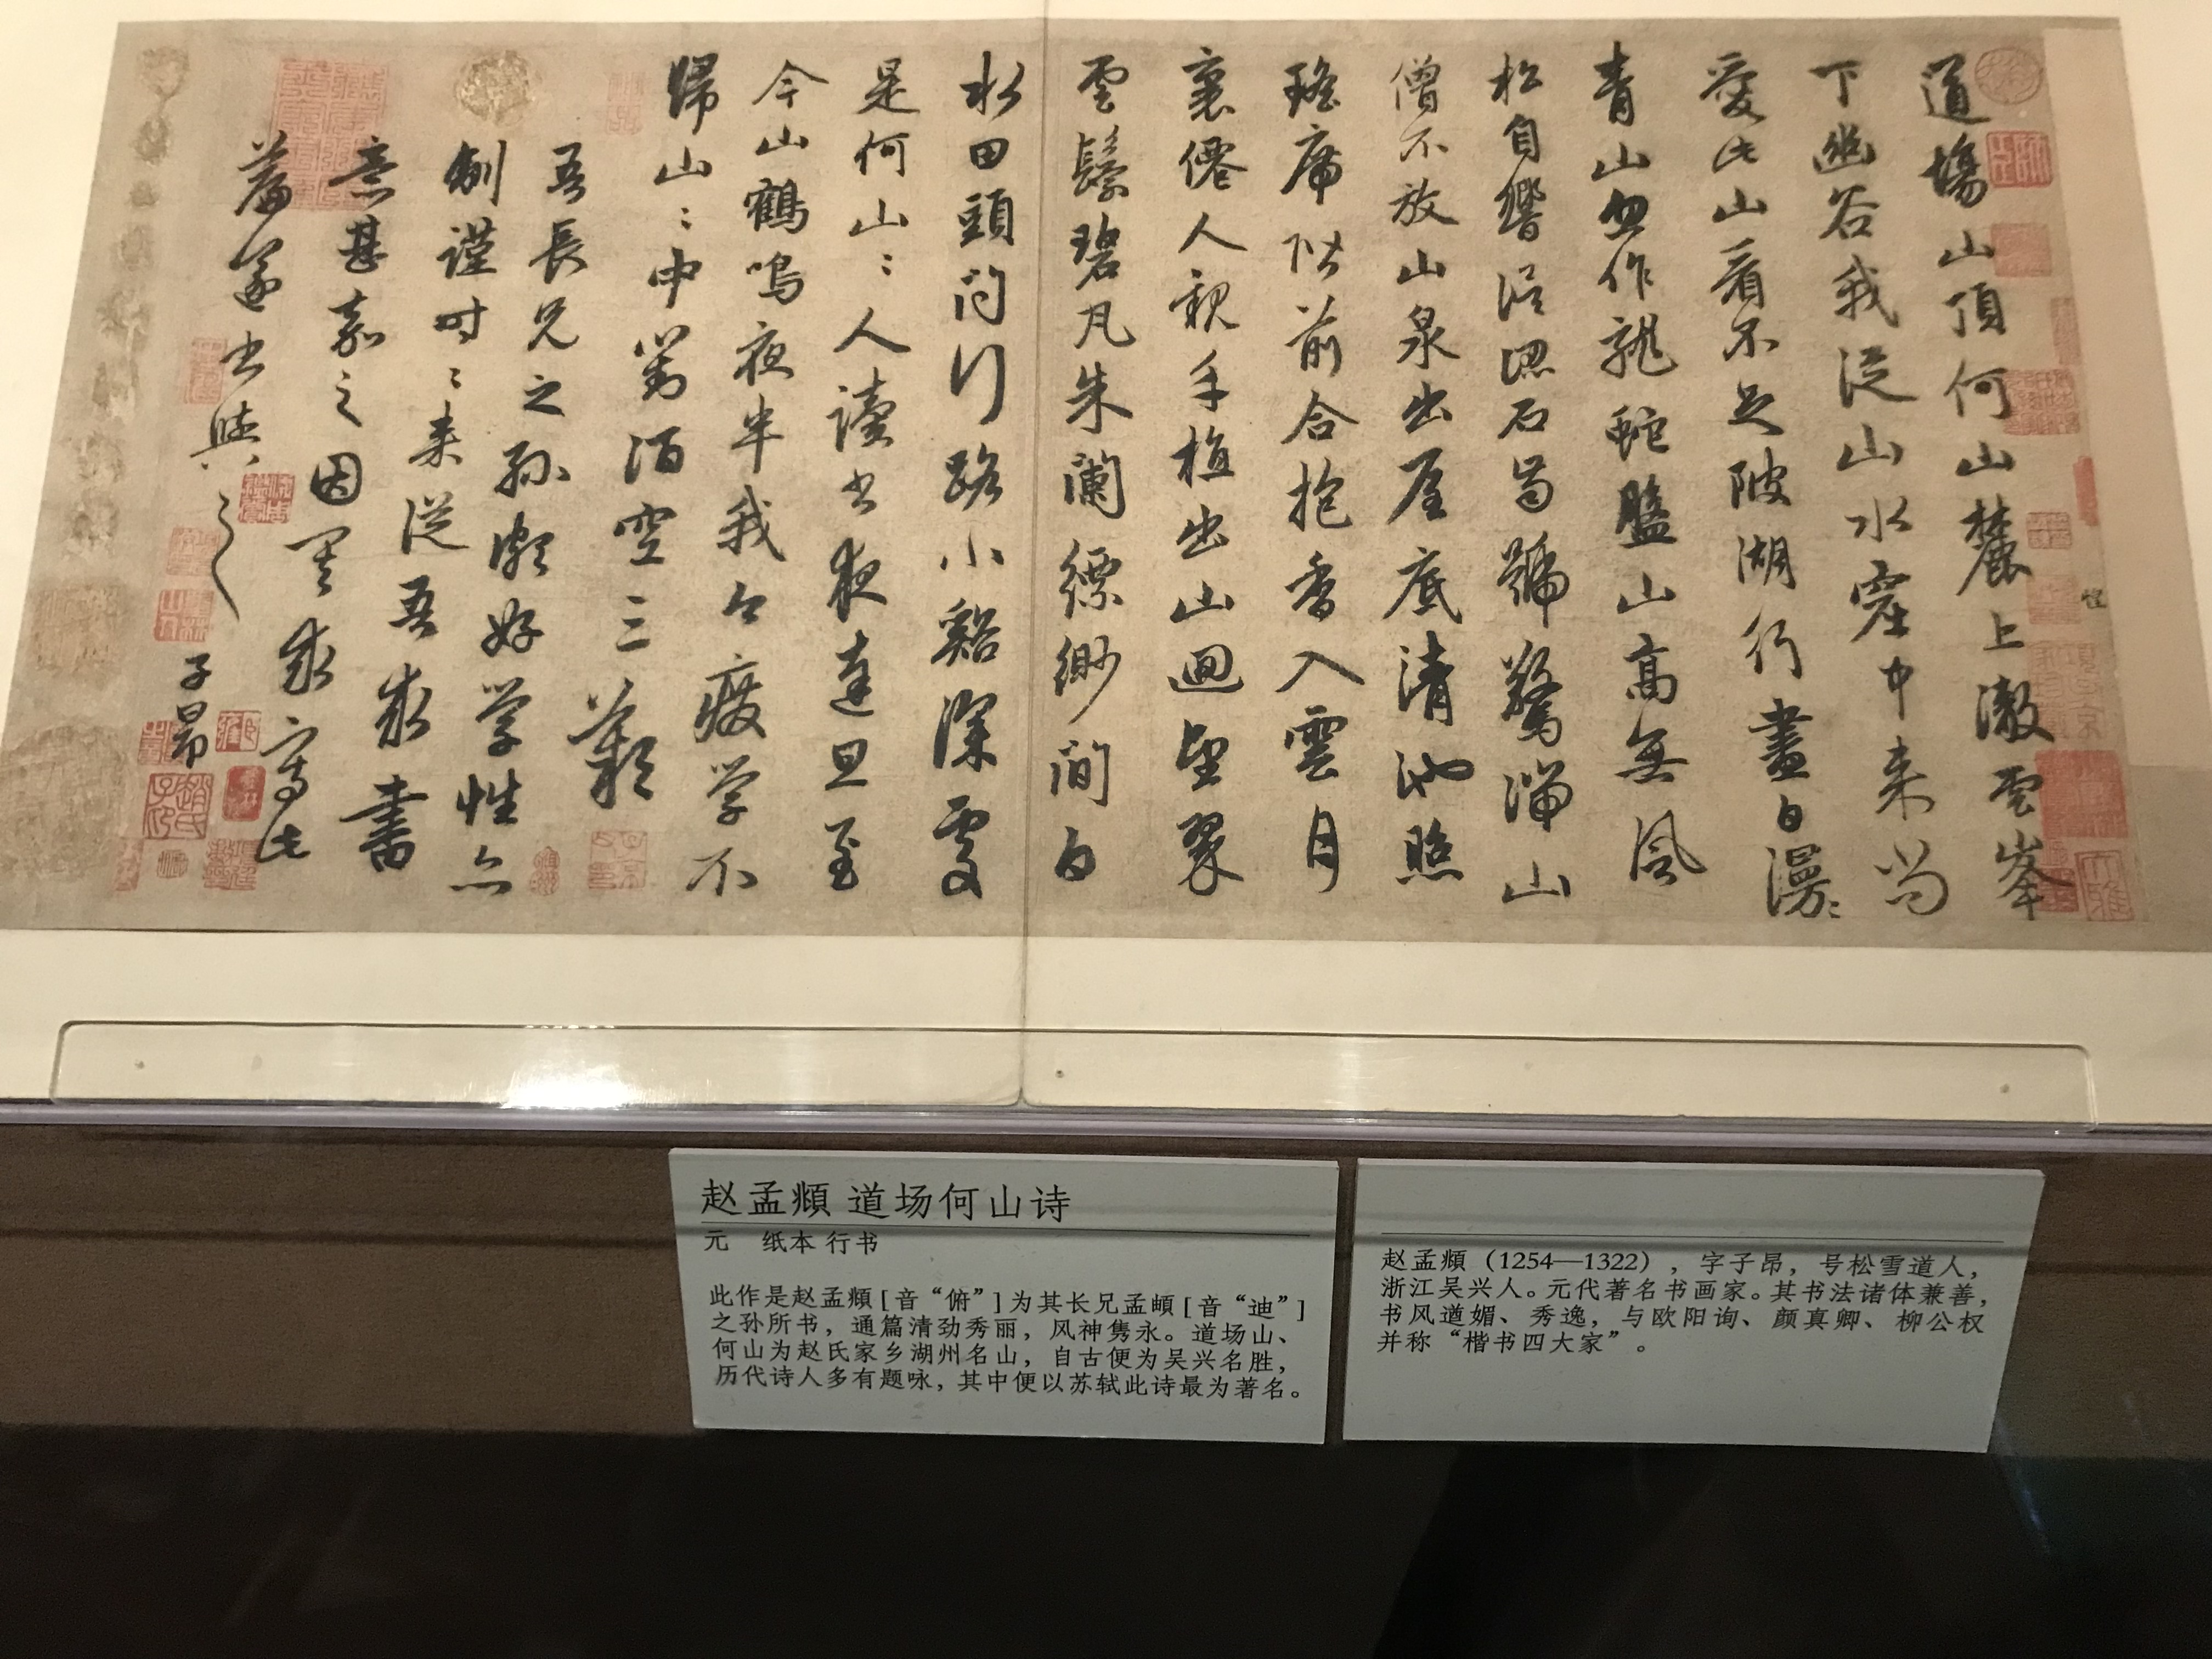 道場山頂何山麓上澈雲峯
下幽谷我從山水窟中来尚
愛此山看不足陂湖行盡白漫〻
青山忽作龍蛇盤山高無風
松自響誤認石齒號驚湍山
僧不放山泉出屋底清池照
瑤席階前合抱香入雲月
裏僊人親手植出山迴望翠
雲鬟碧瓦朱闌縹緲間白
水田頭問行路小谿深處
是何山〻人讀書夜達旦至
今山鶴鳴夜半我今廢学不
歸山〻中對酒空三歎
吾長兄之孫好学性亦
制謹时〻来從吾求書
意甚嘉之因其求寫此
篇遂書與之
子昂
赵孟頫 道场何山诗
元 纸本 行书
此作是赵孟頫[音“俯”]为其长兄孟頔[音“迪”]
之孙所书，通篇清劲秀丽，风神隽永。道场山、
何山为赵氏家乡湖州名山，自古便为吴兴名胜，
历代诗人多有题咏，其中便以苏轼此诗最为著名。
赵孟頫（1254—1322），字子昂，号松雪道人，
浙江吴兴人。元代著名书画家。其书法诸体兼善，
书风遒媚、秀逸，与欧阳询、颜真卿、柳公权
并称“楷书四大家”。